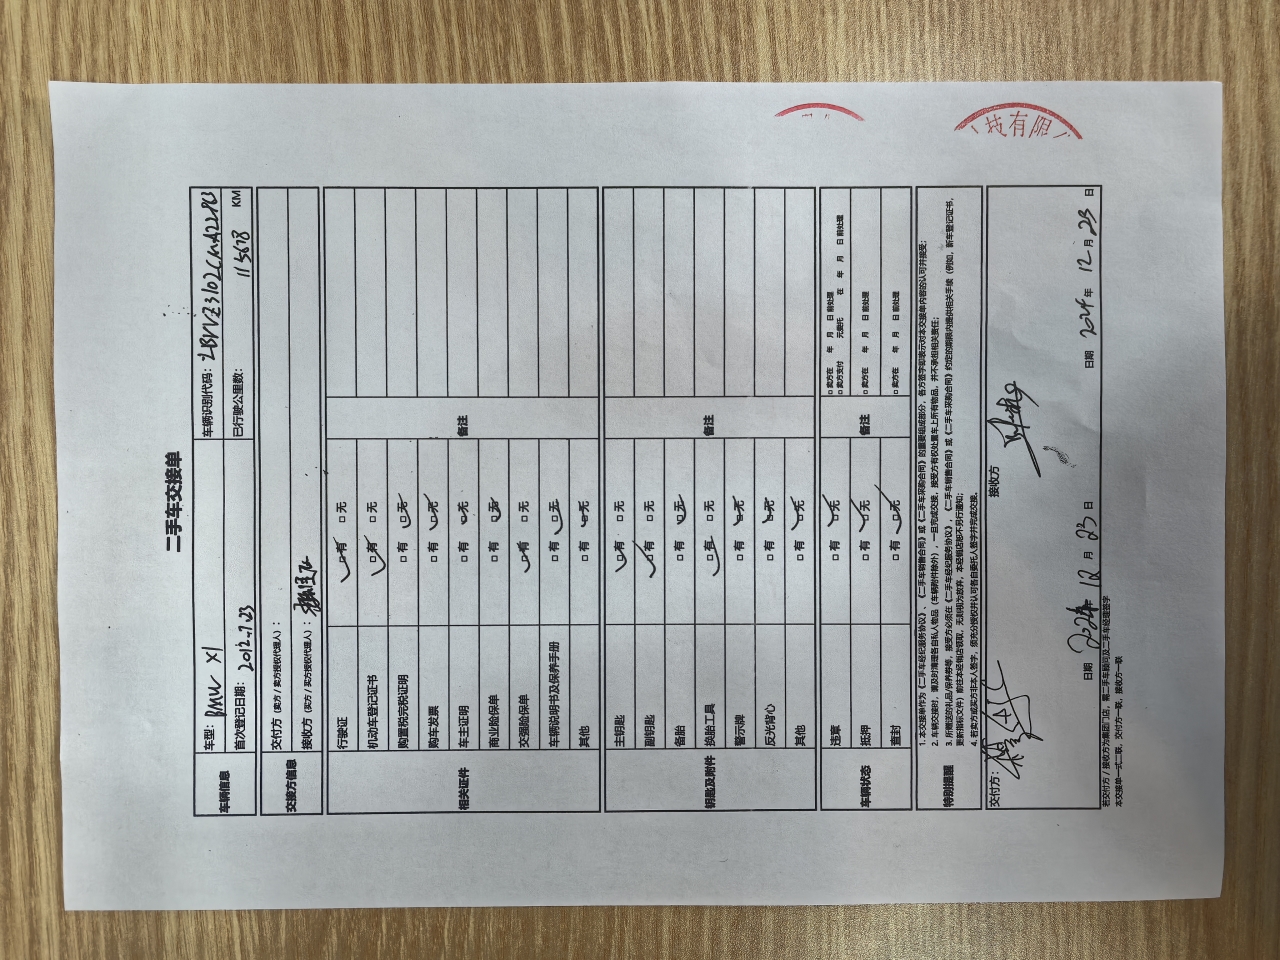 二手车交接单
车辆信息
车型: BMW X1
车辆识别代码:
首次登记日期: 2012.7.23
已行驶公里数: 115678 KM
交接方信息
交付方 (卖方 / 卖方授权代理人) :
接收方 (买方 / 买方授权代理人) :
相关证件
行驶证 □有 □无
机动车登记证书 □有 □无
购置税完税证明 □有 □无
购车发票 □有 □无
车主证明 □有 □无
商业险保单 □有 □无
交强险保单 □有 □无
车辆说明书及保养手册 □有 □无
其他 □有 □无
备注
钥匙及附件
主钥匙 □有 □无
副钥匙 □有 □无
备胎 □有 □无
换胎工具 □有 □无
警示牌 □有 □无
反光背心 □有 □无
其他 □有 □无
备注
车辆状态
违章 □有 □无
抵押 □有 □无
查封 □有 □无
备注
□ 卖方在 年 月 日 前处理
□ 卖方支付 元委托 在 年 月 日 前处理
□ 卖方在 年 月 日 前处理
□ 卖方在 年 月 日 前处理
特别提醒
1. 本交接单作为《二手车经纪服务协议》、《二手车销售合同》或《二手车采购合同》的重要组成部分，各方签字即表示对本交接单内容的认可并接受;
2. 车辆交接时，需及时清理各自私人物品 (车辆附件除外) ，一旦完成交接，接受方有权处置车上所有物品，并不承担相关责任;
3. 所赠送的礼品/保养券等，接受方必须在《二手车经纪服务协议》、《二手车销售合同》或《二手车采购合同》约定的期限内提供相关手续 (例如，新车登记证书，
更新指标文件) 前往本经销店领取，无则视为放弃，本经销店恕不另行通知;
4. 若卖方或买方非本人签字，须充分授权并认可各自委托人签字并完成交接。
交付方:
日期 2024年 12 月 23 日
接收方
日期 2024 年 12 月 23 日
若交付方 / 接收方为集团门店，需二手车顾问及二手车经理签字
本交接单一式二联，交付方一联，接收方一联
技有限